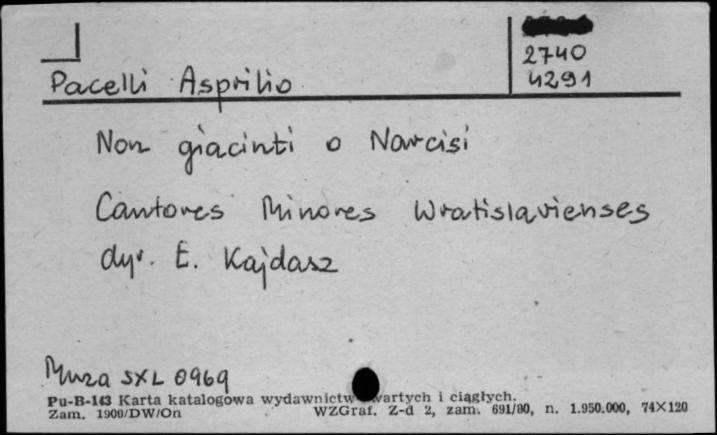 2740
Pacelli Asprilio 4291
Non giacinti o Narcisi
Cantores Minores Wratislavienses
dyr. E. Kajdasz
Muza SXL 0969
Pu-B-143 Karta katalogowa wydawnictw zwartych i ciągłych.
Zam. 1900/DW/On WZGraf. Z-d 2, zam. 691/80, n. 1.950.000, 74×120